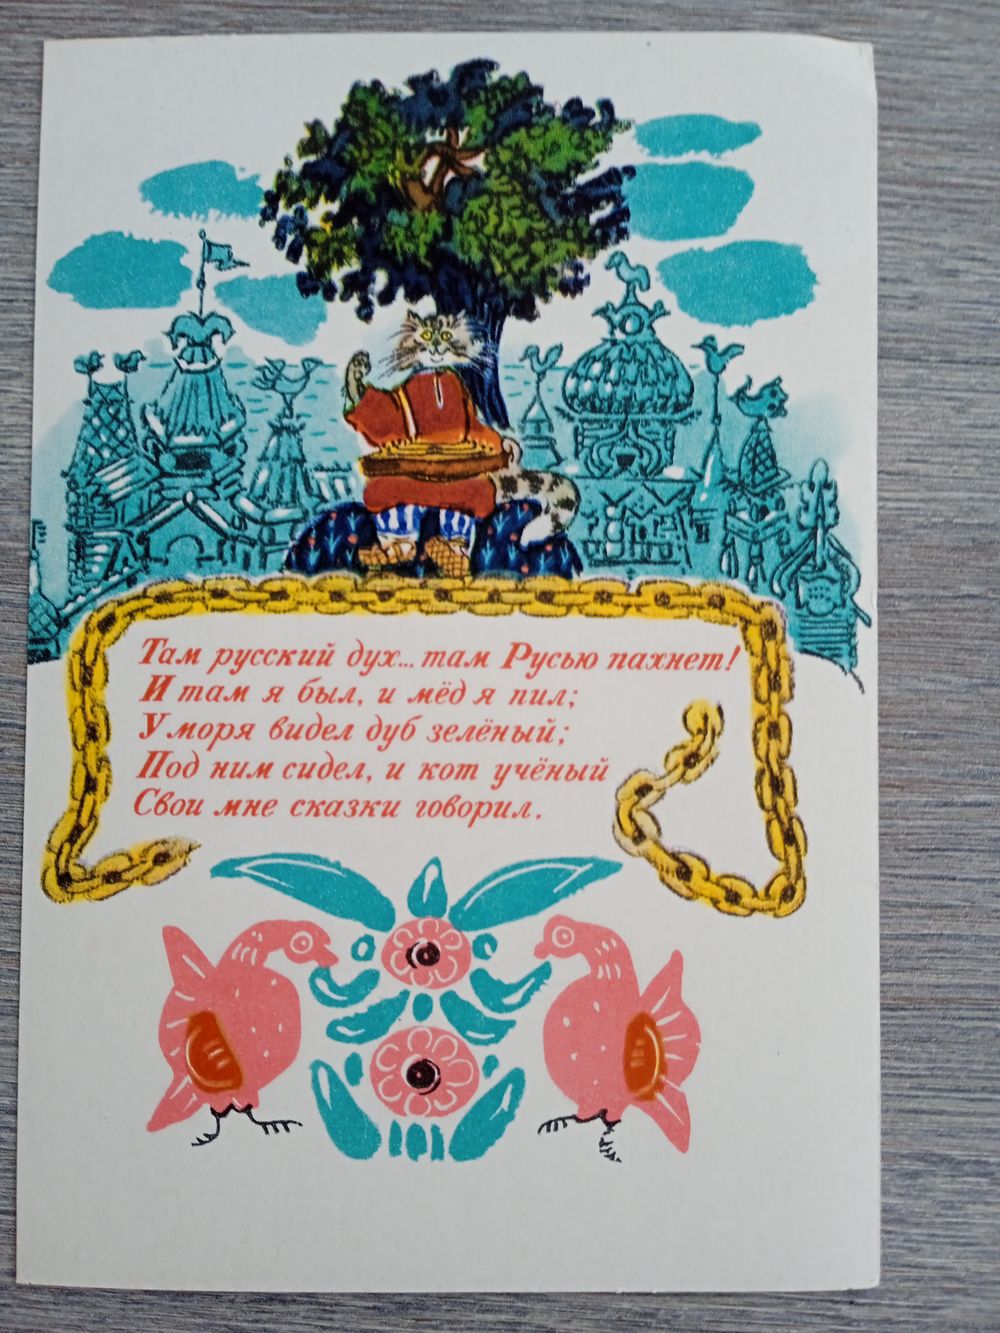 Там русский дух... там Русью пахнет!
И там я был, и мёд я пил;
У моря видел дуб зелёный;
Под ним сидел, и кот учёный
Свои мне сказки говорил.